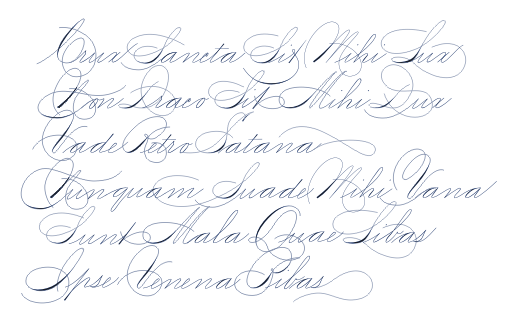 Crux Sancta Sit Mihi Lux
Non Draco Sit Mihi Dux
Vade Retro Satana
Nunquam Suade Mihi Vana
Sunt Mala Quae Libas
Ipse Venena Bibas